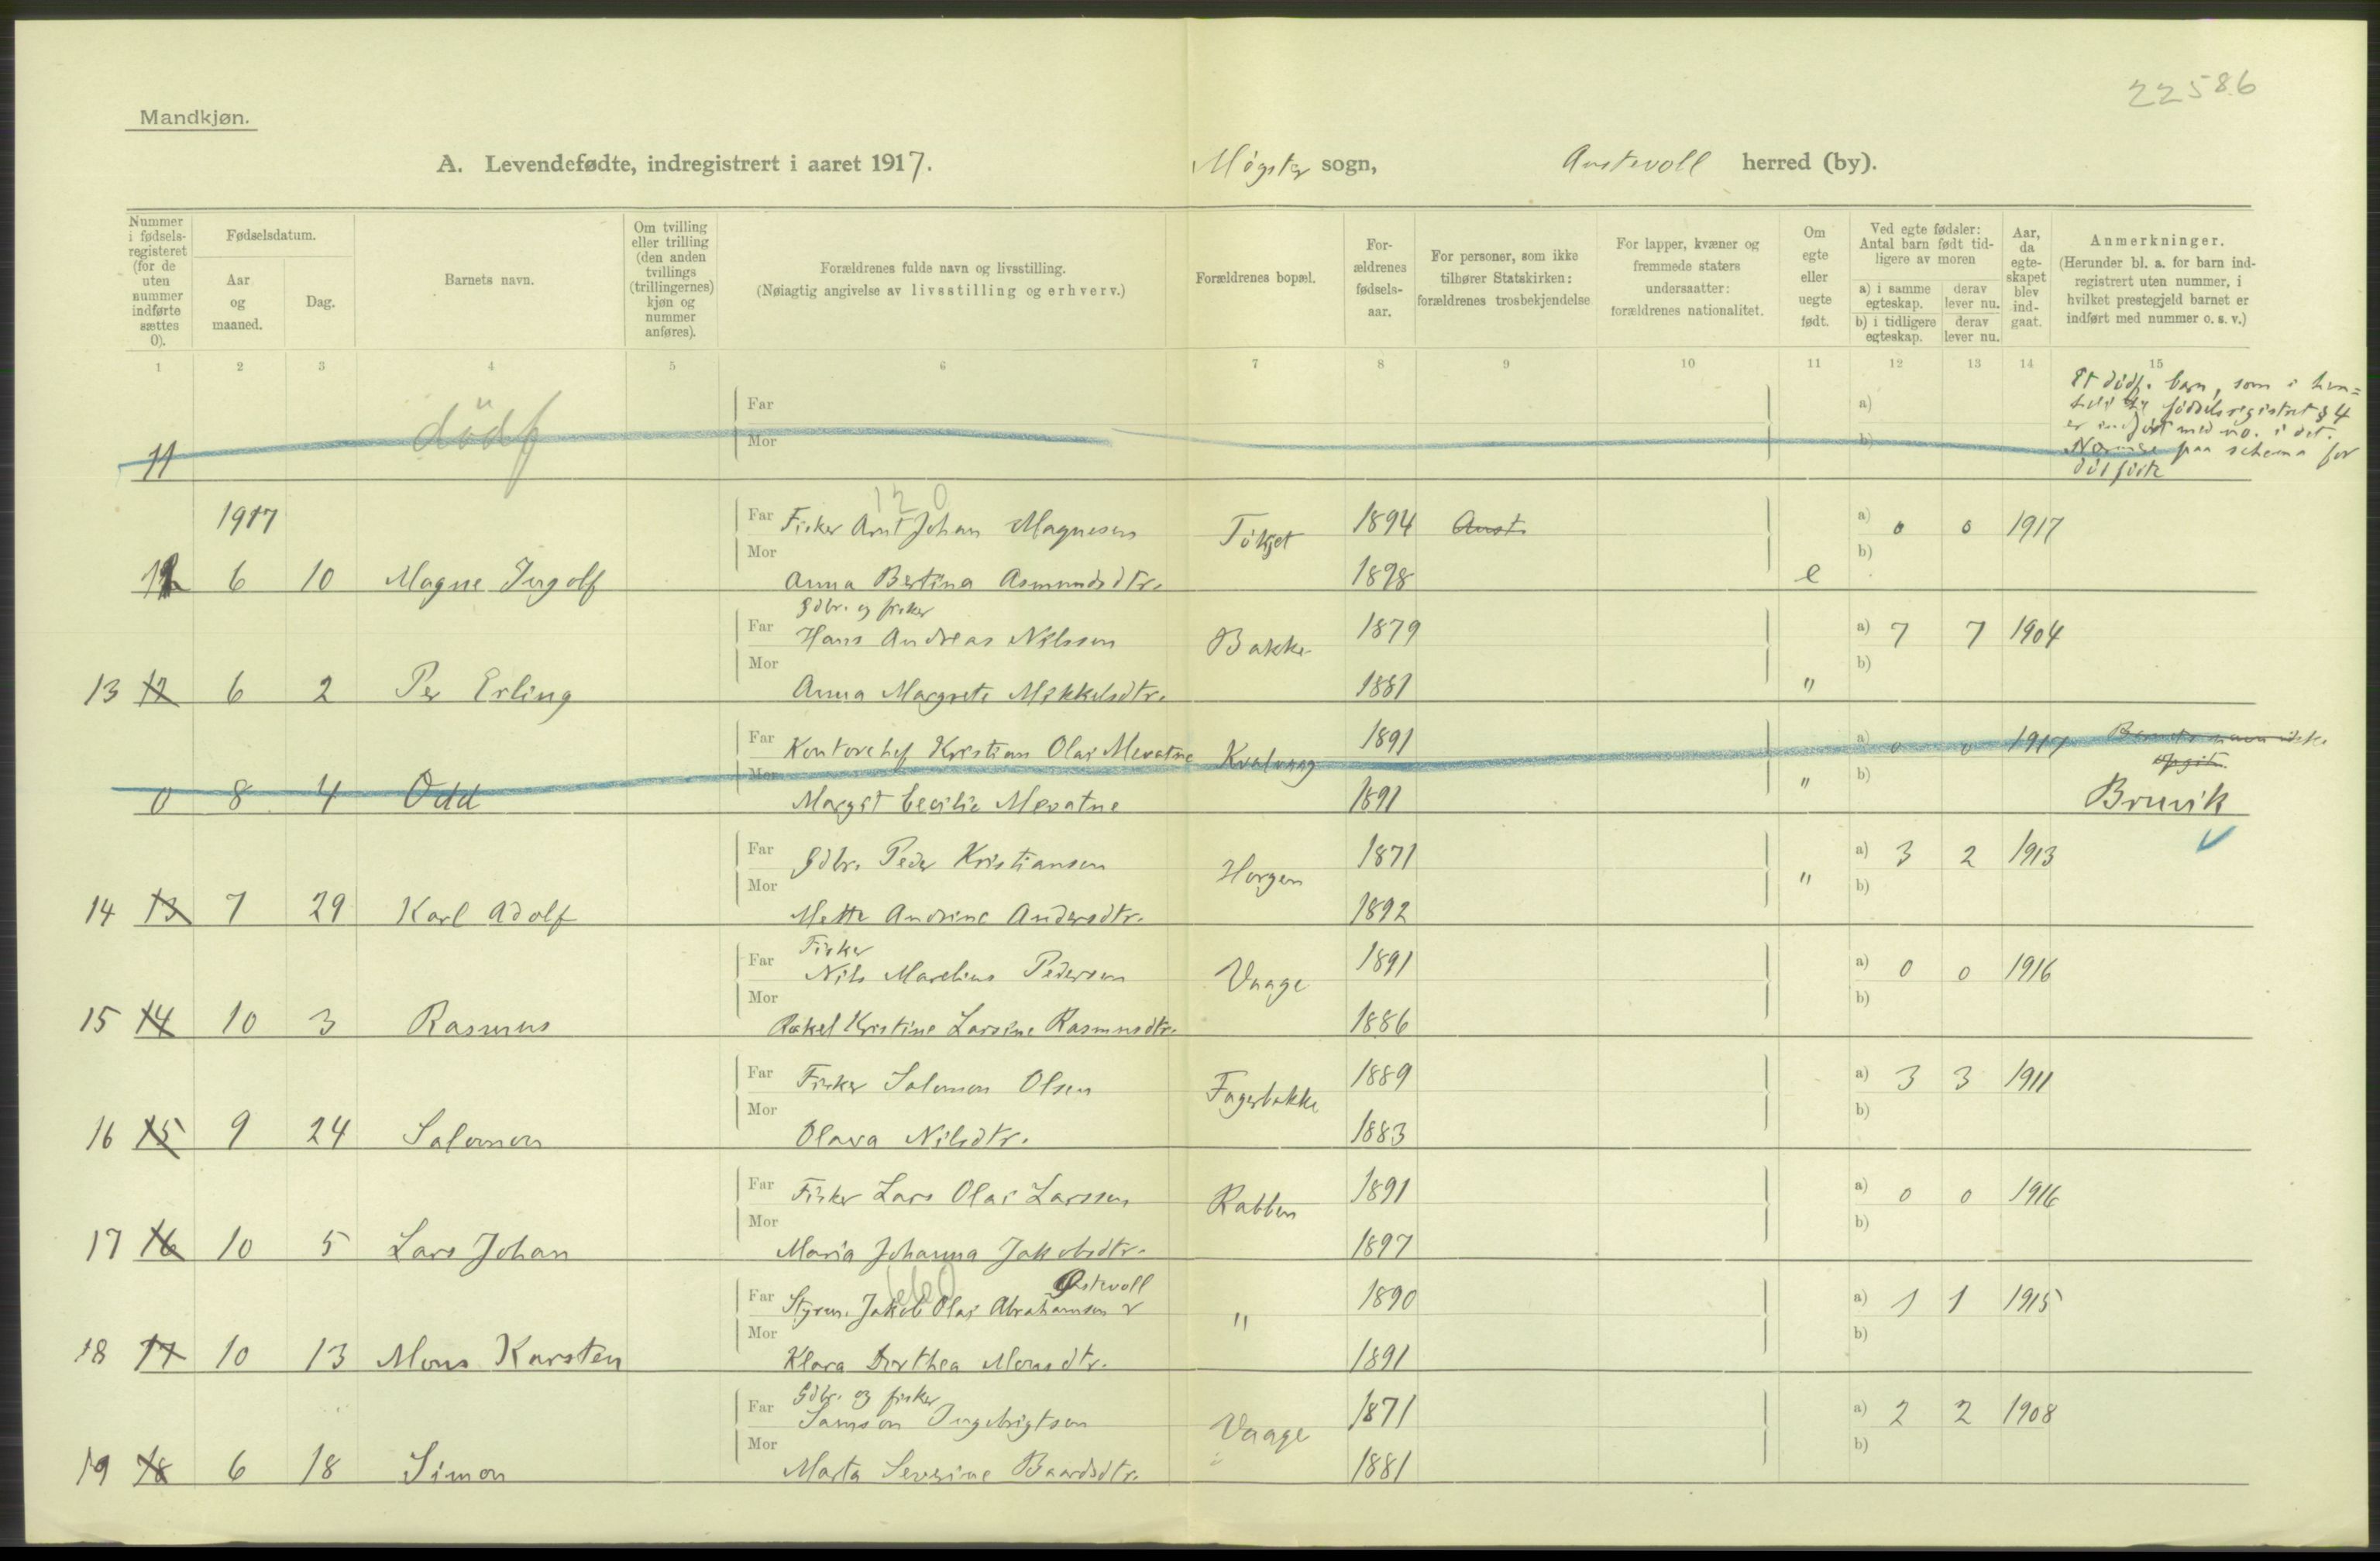 22586
Mandkjøn.
A. Levendefødte, indregistrert i aaret 1917. Møgster sogn, Austevoll herred (by).
Nummer i fødsels-registeret (for de uten nummer indførte sættes 0).
Fødselsdatum.
Aar og maaned.
Dag.
Barnets navn.
Om tvilling eller trilling (den anden tvillings (trillingernes) kjøn og nummer anføres).
Forældrenes fulde navn og livsstilling.
(Nøiagtig angivelse av livsstilling og erhverv.)
Forældrenes bopæl.
For-ældrenes fødsels-aar.
For personer, som ikke tilhører Statskirken: forældrenes trosbekjendelse
For lapper, kvæner og fremmede staters undersaatter: forældrenes nationalitet.
Om egte eller uegte født.
Ved egte fødsler: Antal barn født tid-ligere av moren
a) i samme egteskap. derav lever nu.
b) i tidligere egteskap. derav lever nu.
Aar, da egte-skapet blev ind-gaat.
Anmerkninger.
(Herunder bl. a. for barn ind-registrert uten nummer, i hvilket prestegjeld barnet er indført med nummer o. s. v.)
1 2 3 4 5 6 7 8 9 10 11 12 13 14 15
Et dødf. barn, som i hen=
hold til fødselsregistret § 4
er indført med no. i det.
paa schema for
dødfødte
11 dødf Far a)
Mor b)
120
1917 Far Fisker Arnt Johan Magnesen Tøkjet 1894 Aust. a) 0 0 1917
12 6 10 Magne Ingolf Mor Anna Bertina Asmundsdtr. 1898 e b)
Gdbr. og fisker
Far Hans Andreas Nilssen Bakke 1879 a) 7 7 1904
13 12 6 2 Per Erling Mor Anna Margrete Mikkelsdtr. 1881 " b)
Far Kontorchef Kristian Olai Mevatne Kvalvaag 1891 a) 0 0 1917 Barnets navn ikke
opgit.
0 8 4 Odd Mor Margit Cecilie Mevatne 1891 " b) Bruvik
Far Gdbr. Peder Kristiansen Horgen 1871 a) 3 2 1913
14 13 7 29 Karl Adolf Mor Mette Andrine Andersdtr. 1892 " b)
Fisker
Far Nils Marelius Pedersen Vaage 1891 a) 0 0 1916
15 14 10 3 Rasmus Mor Rakel Kristine Larsine Rasmusdtr. 1886 b)
Far Fisker Salomon Olsen Fagerbakke 1889 a) 3 3 1911
16 15 9 24 Salomon Mor Olava Nilsdtr. 1883 b)
Far Fisker Lars Olai Larssen Rabben 1891 a) 0 0 1916
17 16 10 5 Lars Johan Mor Maria Johanna Jakobsdtr. 1897 b)
Østevoll
Far Styrm. Jakob Olai Abrahamsen " 1890 a) 1 1 1915
18 17 10 13 Mons Karsten Mor Klara Dorthea Monsdtr. 1891 b)
Gdbr. og fisker
Far Samson Ingebrigtsen Vaage 1871 a) 2 2 1908
19 18 6 18 Simon Mor Marta Severine Baardsdtr. 1881 b)